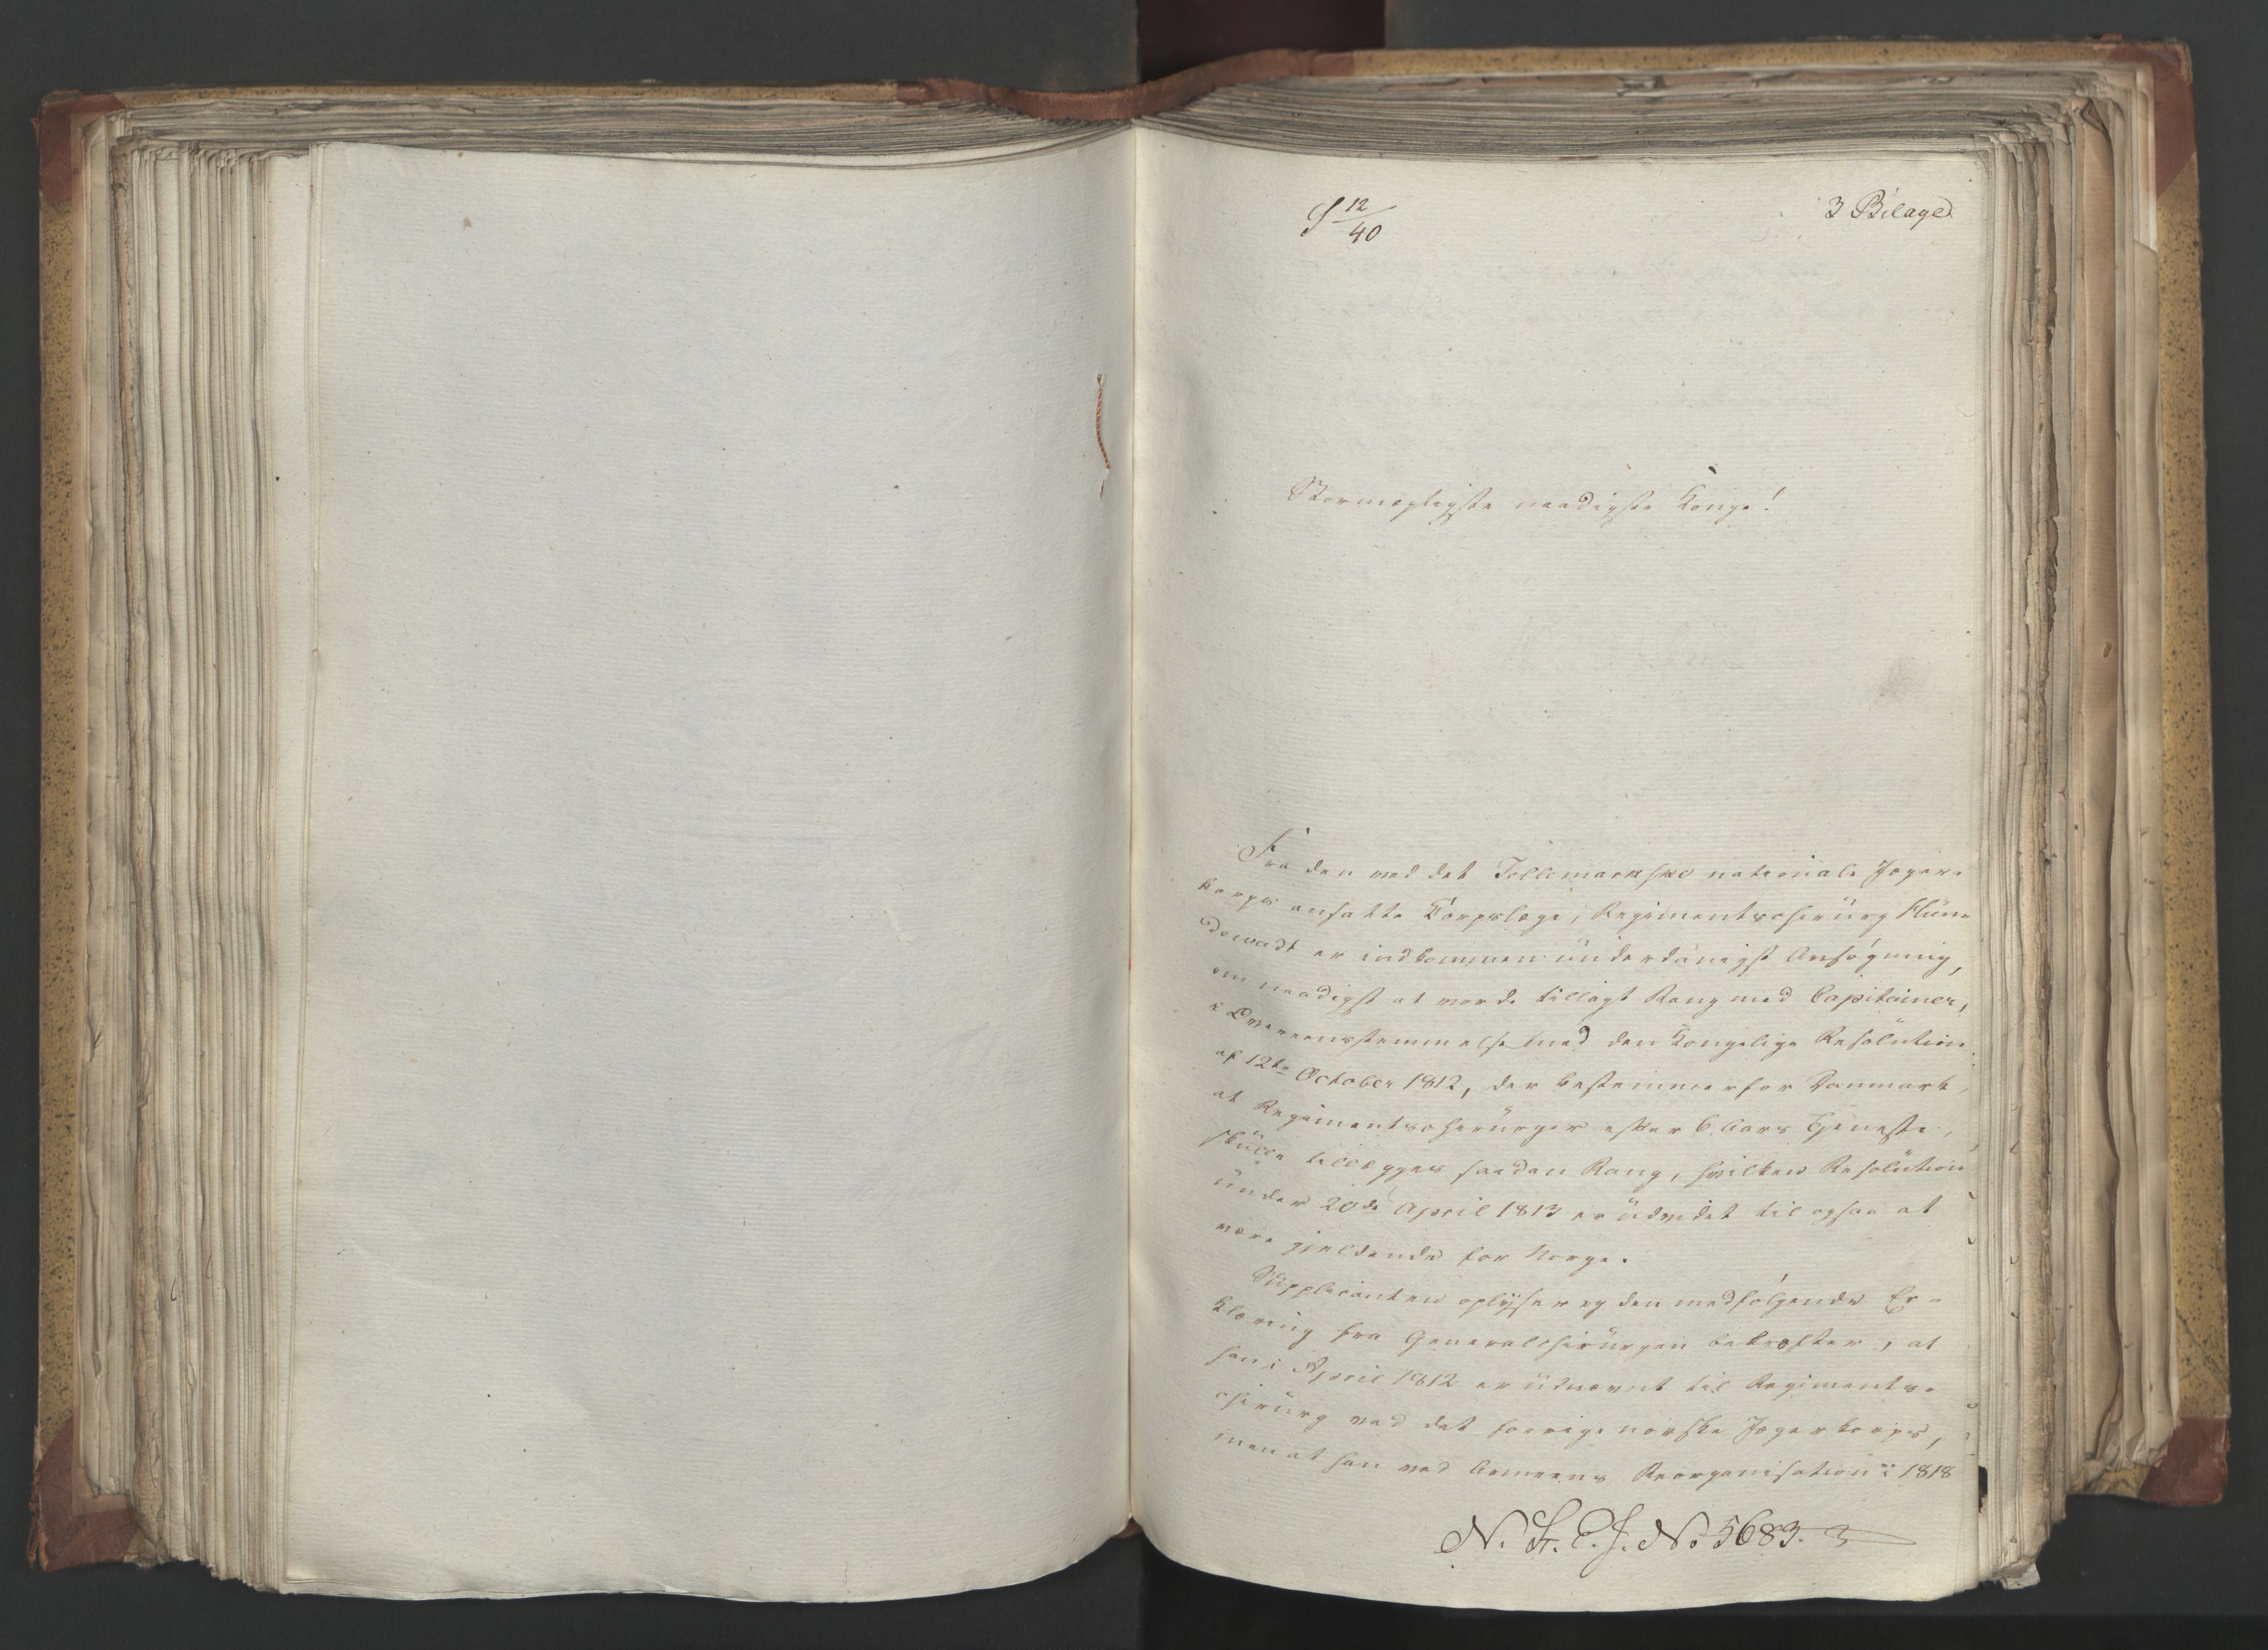 S 12/40
3 Bilage
Stormægtigste naadigste Konge!
Fra den ved det Tellemarkske nationale Jæger-
korps ansatte Corpslæge, Regimentschirurg Mün-
dewadt er indkommen underdanigst Ansøgning,
om naadigst at vorde tillagt Rang med Capitainer,
i Overeensstemmelse med den Kongelige Resolution
af 12te October 1812, der bestemmer for Danmark,
at Regimentschirurger efter 6 Aars Tjeneste,
skulle tillægges saadan Rang, hvilken Resolution
under 20de April 1813 er udvidet til ogsaa at
være gjeldende for Norge.
Supplicanten oplyser og den medfølgende Er-
klæring fra Generalchirurgen bekræfter, at
han i April 1812 er udnævnt til Regiments-
chirurg ved det forrige norske Jægerkorps,
men at han ved Armeens Reorganisation i 1818
N. St. E. J. No 5683.